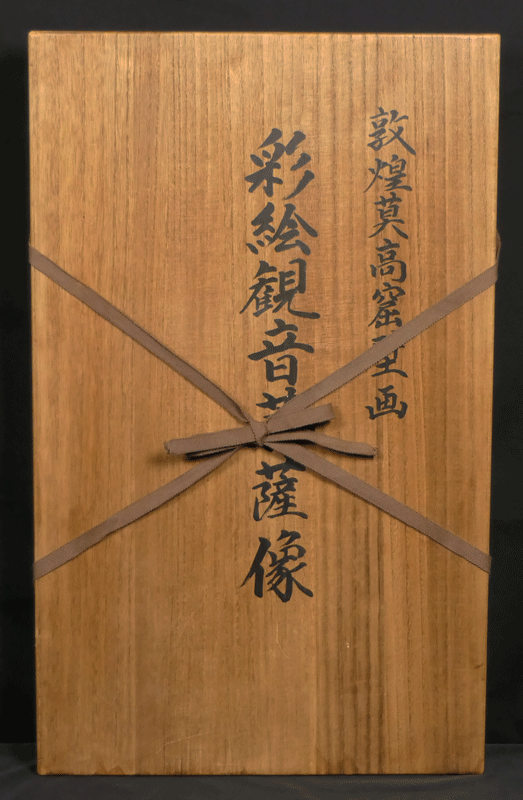 敦煌莫高窟壁画
彩絵観音菩薩像